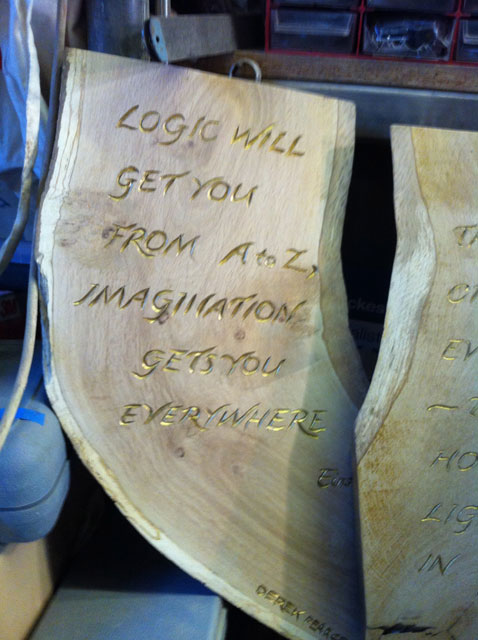 LOGIC WILL
GET YOU
FROM A to Z,
IMAGINATION
GETS YOU
EVERYWHERE
DEREK
EV
HO
LIG
IN